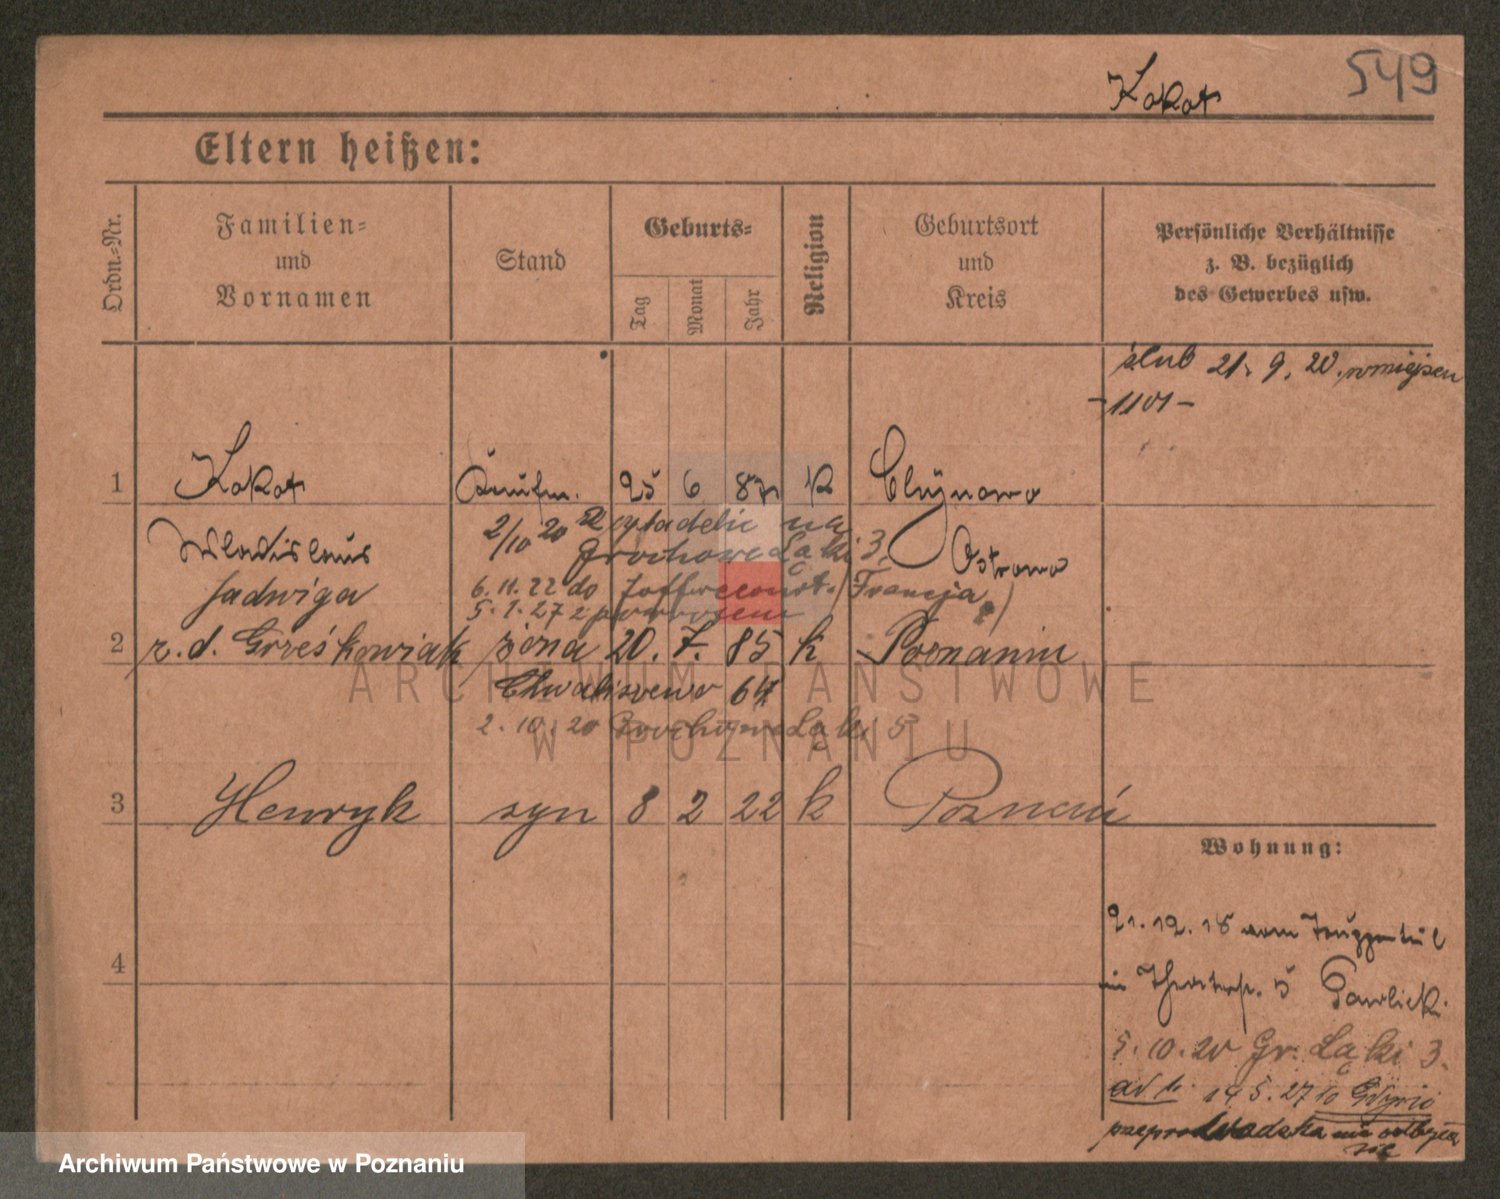 549
Kokot
Eltern heißen:
Ordn.-Nr.
Familien-
und
Vornamen
Stand
Geburts-
Tag
Monat
Jahr
Religion
Geburtsort
und
Kreis
Persönliche Verhältnisse
z. B. bezüglich
des Gewerbes usw.
ślub 21. 9. 20.
1 Kokot Kaufm. 25 6 87 k
2/10 20 Cytadelic na
Grochowe Łąki 3
Wladislaus Ostrowo
Jadwiga 6. 11. 22 do Francja
5. 1. 27 z powrotem
2 z. d. Grześkowiak żona 20. 7. 85 k Poznaniu
Chwaliszewo
2. 10. 20 Grochowe Łąki
3 Henryk syn 8 2 22 k Poznań
Wohnung:
21. 12. 18 vom
4
in 5 Pawlick.
5. 10. 20 Gr. Łąki 3.
ad 1. 14 5. 27
przeprowadzka nie odbyła
się
ARCHIWUM PAŃSTWOWE
W POZNANIU
Archiwum Państwowe w Poznaniu